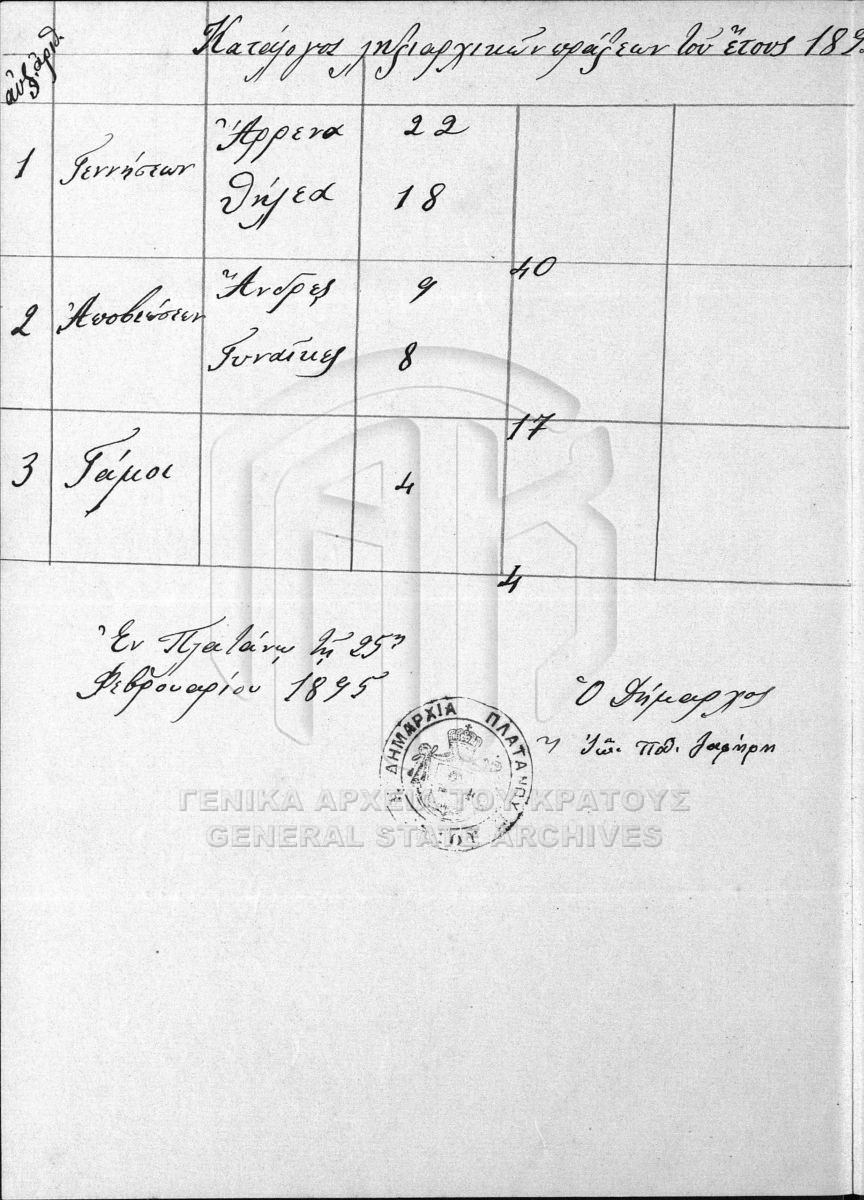 αὐξ. ἀριθ.
Κατάλογος ληξιαρχικῶν πράξεων τοῦ ἔτους 189
1 Γεννήσεων Ἄρρενα 22
Θήλεα 18
40
2 Ἀποβιώσεων Ἄνδρες 9
Γυναῖκες 8
17
3 Γάμοι 4
4
Ἐν Πλατάνῳ τῇ 25ῃ
Φεβρουαρίου 1895
Ὁ Δήμαρχος
ΔΗΜΑΡΧΙΑ ΠΛΑΤΑΝΟΥ
ΓΕΝΙΚΑ ΑΡΧΕΙΑ ΤΟΥ ΚΡΑΤΟΥΣ
GENERAL STATE ARCHIVES